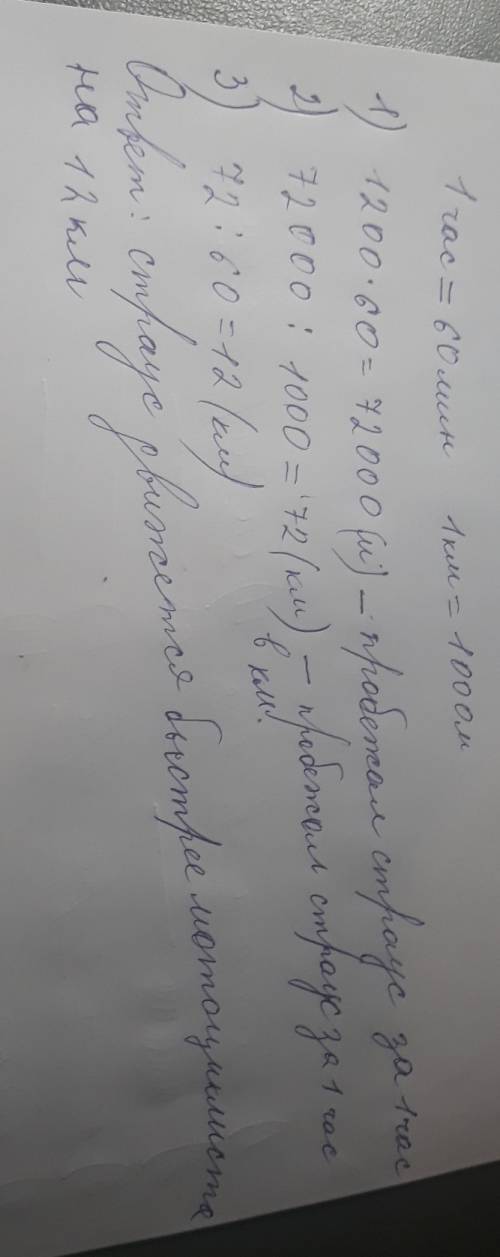 1 час = 60 мин 1 км = 1000 м
1) 1200·60 = 72000 (м) – пробежал страус за 1 час
2) 72000 : 1000 = 72 (км) – пробежал страус за 1 час
в км.
3) 72 : 60 = 12 (км)
Ответ: страус движется быстрее мотоциклиста
на 12 км